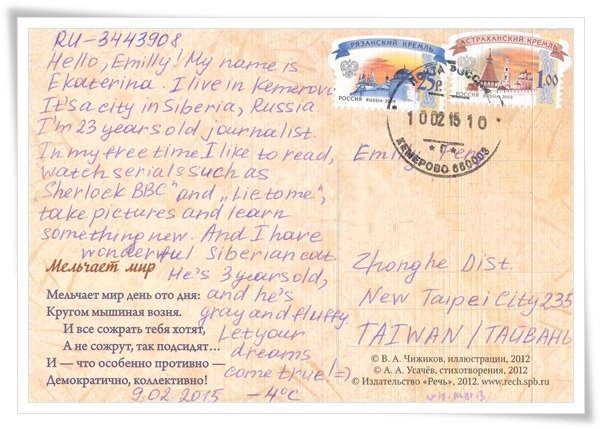 RU-3443908
Hello, Emilly! My name is
Ekaterina. I live in Kemerovo
It's a city in Siberia, Russia.
I'm 23 years old journalist.
In my free time I like to read,
watch serials such as
„Sherlock BBC" and „Lie to me",
take pictures and learn
something new. And I have
wonderful Siberian cat.
He's 3 years old,
and he's
gray and fluffy.
Let your
dreams
come true! =)
9.02.2015 -4°C
Мельчает мир
Мельчает мир день ото дня:
Кругом мышиная возня.
И все сожрать тебя хотят,
А не сожрут, так подсидят…
И — что особенно противно —
Демократично, коллективно!
РЯЗАНСКИЙ КРЕМЛЬ
25р
РОССИЯ RUSSIA·2009
АСТРАХАНСКИЙ КРЕМЛЬ
1.00
РОССИЯ RUSSIA·2009
ПОЧТА РОССИИ
10 02 15 10
КЕМЕРОВО 650003
Emily
Zhonghe Dist.
New Taipei City 235
TAIWAN / ТАЙВАНЬ
© В. А. Чижиков, иллюстрации, 2012
© А. А. Усачёв, стихотворения, 2012
© Издательство «Речь», 2012. www.rech.spb.ru